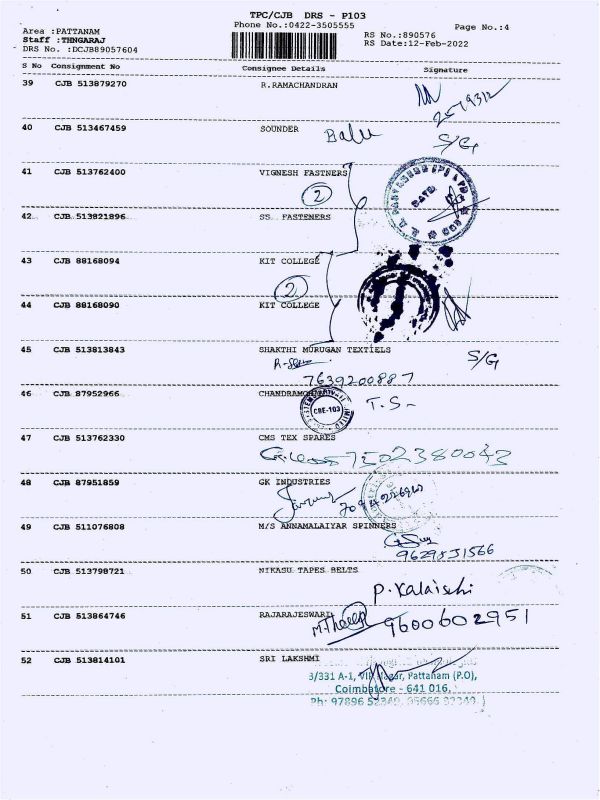 TPC/CJB DRS - P103
Phone No.:0422-3505555
Page No.:4
Area :PATTANAM
Staff :THNGARAJ
DRS No. :DCJB89057604
RS No.:890576
RS Date:12-Feb-2022
S No Consignment No Consignee Details Signature
39 CJB 513879270 R.RAMACHANDRAN
40 CJB 513467459 SOUNDER Balu S/G
41 CJB 513762400 VIGNESH FASTNERS
2
42 CJB 513821896 SS FASTENERS
43 CJB 88168094 KIT COLLEGE
2
44 CJB 88168090 KIT COLLEGE
45 CJB 513813843 SHAKTHI MURUGAN TEXTIELS S/G
7639200887
46 CJB 87952966 T.S-
CBE-103
47 CJB 513762330 CMS TEX SPARES
7502380043
48 CJB 87951859 GK INDUSTRIES
49 CJB 511076808 M/S ANNAMALAIYAR SPINNERS
9629831566
50 CJB 513798721 NIKASU TAPES BELTS
P. Kalaiselvi
51 CJB 513864746 RAJARAJESWARI
9600602951
52 CJB 513814101 SRI LAKSHMI
3/331 A-1, VIP Nagar, Pattanam (P.O),
Coimbatore - 641 016.
Ph: 97896